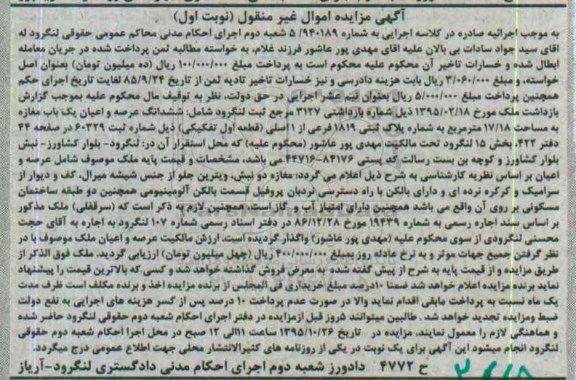 آگهی مزایده اموال غیر منقول (نوبت اول)
به موجب اجرائیه صادره در کلاسه اجرایی به شماره ۹۴۰۱۸۹/ ۵ شعبه دوم اجرای احکام مدنی محاکم عمومی حقوقی لنگرود له
اقای سید جواد سادات بی بالان علیه اقای مهدی پور عاشور فرزند غلام، به خواسته مطالبه ثمن پرداخت شده در جریان معامله
ابطال شده و خسارات تاخیر آن محکوم علیه محکوم است به پرداخت مبلغ ۱۰۰/۰۰۰/۰۰۰ ریال (ده میلیون تومان) بعنوان اصل
خواسته، و مبلغ ۳/۰۶۰/۰۰۰ ریال بابت هزینه دادرسی و نیز خسارات تاخیر تادیه ثمن از تاریخ ۸۵/۹/۲۴ لغایت تاریخ اجرای حکم
همچنین پرداخت مبلغ ۵/۰۰۰/۰۰۰ ریال بعنوان نیم عشر اجرایی در حق دولت، نظر به توقیف مال محکوم علیه بموجب گزارش
بازداشت ملک مورخ ۱۳۹۵/۰۲/۱۸ ذیل شماره بازداشتی ۳۱۲۷ مرجع ثبت لنگرود شامل: ششدانگ عرصه و اعیان یک باب مغازه
به مساحت ۱۷/۱۸ مترمربع به شماره پلاک ثبتی ۱۸۱۹ فرعی از ۱ اصلی (قطعه اول تفکیکی) ذیل شماره ثبت ۶۰۳۲۹ در صفحه ۴۴
دفتر ۴۲۲، بخش ۱۵ لنگرود تحت مالکیت مهدی پور عاشور (محکوم علیه) که محل استقرار آن در: لنگرود- بلوار کشاورز- نبش
بلوار کشاورز و کوچه بن بست رسالت کد پستی ۸۴۱۷۶-۴۴۷۱۶ می باشد، مشخصات و قیمت پایه ملک موصوف شامل عرصه و
اعیان بر اساس نظریه کارشناسی به شرح ذیل اعلام می گردد: مغازه دو نبش، ویترین جلو از جنس شیشه میرال، کف و دیوار از
سرامیک و کرکره نرده ای و دارای بالکن با راه دسترسی نردبان پروفیل قسمت بالکن آلومینیومی همچنین دو طبقه ساختمان
مسکونی بر روی آن واقع می باشد همچنین دارای امتیاز آب و گاز است. همچنین لازم به ذکر است که (سرقفلی) ملک مذکور
بر اساس سند اجاره رسمی به شماره ۱۹۴۳۹ مورخ ۸۶/۱۲/۲۸ در دفتر اسناد رسمی شماره ۱۰۷ لنگرود به اجاره به آقای حجت
محسنی لنگرودی از سوی محکوم علیه (مهدی پور عاشور) واگذار گردیده است. ارزش مالکیت عرصه و اعیان ملک موصوف با در
نظر گرفتن جمیع جهات موثر و به نرخ عادله روز بمبلغ ۴۰۰/۰۰۰/۰۰۰ ریال (چهل میلیون تومان) ارزیابی گردید. ملک فوق الذکر از
طریق مزایده و از قیمت پایه به شرح از پیش گفته شده به معرض فروش گذاشته خواهد شد و کسی که بالاترین قیمت را پیشنهاد
نماید برنده مزایده اعلام خواهد شد ضمنا ۱۰درصد مبلغ خریداری فی المجلس از برنده مزایده اخذ و برنده مکلف است ظرف مدت
یک ماه نسبت به پرداخت مابقی اقدام نماید والا در صورت عدم پرداخت ۱۰ درصد پس از کسر هزینه های اجرایی به نفع دولت
ضبط ومزایده تجدید خواهد شد . طالبین میتوانند ۵روز قبل ازمزایده در دفتر اجرای احکام شعبه دوم حقوقی لنگرود حاضر شده
و هماهنگی لازم را معمول نمایند. مزایده در تاریخ ۱۳۹۵/۱۰/۲۶ ساعت ۱۱الی ۱۲ صبح در محل اجرا احکام شعبه دوم حقوقی
لنگرود انجام میشود این آگهی برای یک نوبت در یکی از روزنامه های کثیرالانتشار محلی جهت اطلاع عمومی درج میگردد.
ح ۴۷۷۲ دادورز شعبه دوم اجرای احکام مدنی دادگستری لنگرود-آریاز